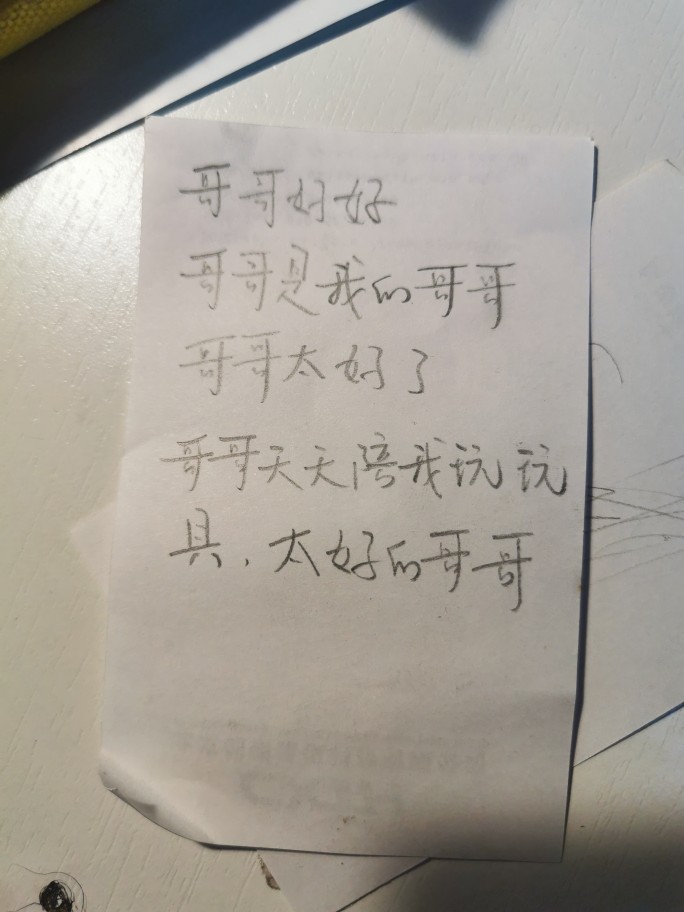 哥哥好好
哥哥是我的哥哥
哥哥太好了
哥哥天天陪我玩玩
具,太好的哥哥